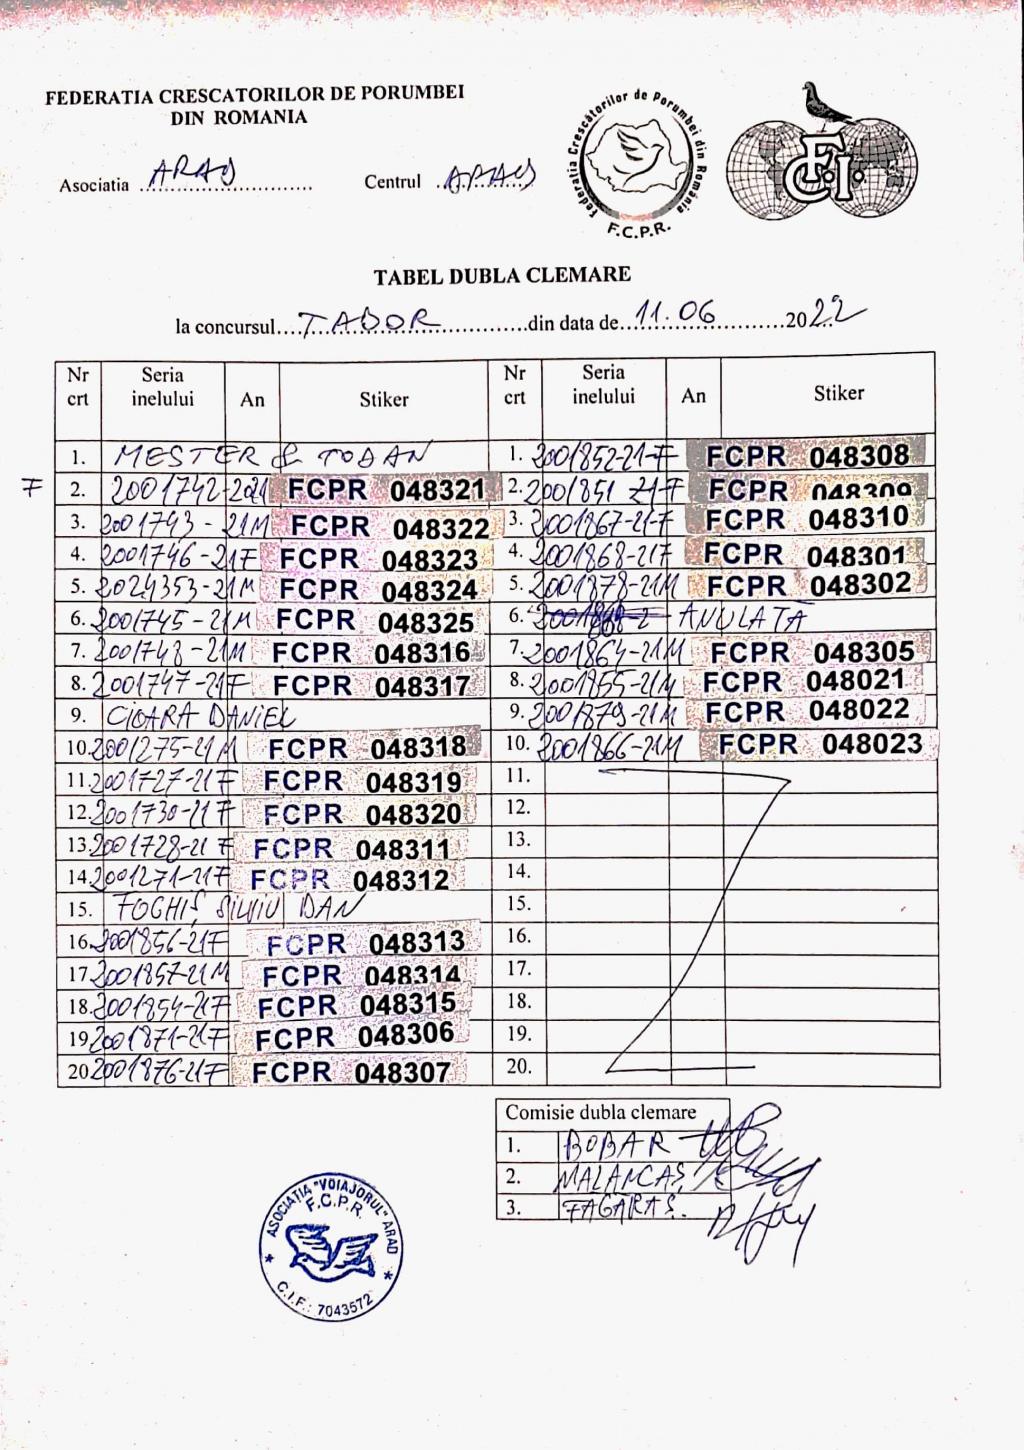 FEDERATIA CRESCATORILOR DE PORUMBEI
DIN ROMANIA
Asociatia ARAD Centrul ARAD
Federatia Crescătorilor de Porumbei din România
F.C.P.R.
F.C.I.
TABEL DUBLA CLEMARE
la concursul TABOR din data de 11.06 2022
Nr crt Seria inelului An Stiker
1. MESTER & TODAN
F 2. 2001742-2021 FCPR 048321
3. 2001743-21M FCPR 048322
4. 2001746-21F FCPR 048323
5. 2024353-21M FCPR 048324
6. 2001745-21M FCPR 048325
7. 2001748-21M FCPR 048316
8. 2001747-21F FCPR 048317
9. CIOARA DANIEL
10. 2001275-21M FCPR 048318
11. 2001727-21F FCPR 048319
12. 2001730-21F FCPR 048320
13. 2001728-21F FCPR 048311
14. 2001271-21F FCPR 048312
15. FOGHIȘ SILVIU DAN
16. 2001856-21F FCPR 048313
17. 2001857-21M FCPR 048314
18. 2001854-21F FCPR 048315
19. 2001871-21F FCPR 048306
20. 2001876-21F FCPR 048307
Nr crt Seria inelului An Stiker
1. 2001852-21-F FCPR 048308
2. 2001851 21-F FCPR 048309
3. 2001867-21-F FCPR 048310
4. 2001868-21F FCPR 048301
5. 2001878-21M FCPR 048302
6. ANULATĂ
7. 2001864-21M FCPR 048305
8. 2001855-21M FCPR 048021
9. 2001879-21M FCPR 048022
10. 2001866-21M FCPR 048023
11.
12.
13.
14.
15.
16.
17.
18.
19.
20.
Comisie dubla clemare
1. BOBAR
2. MALANCAȘ
3. FAGARAȘ.
ASOCIAȚIA "VOIAJORUL" ARAD
F.C.P.R.
C.I.F.: 7043572